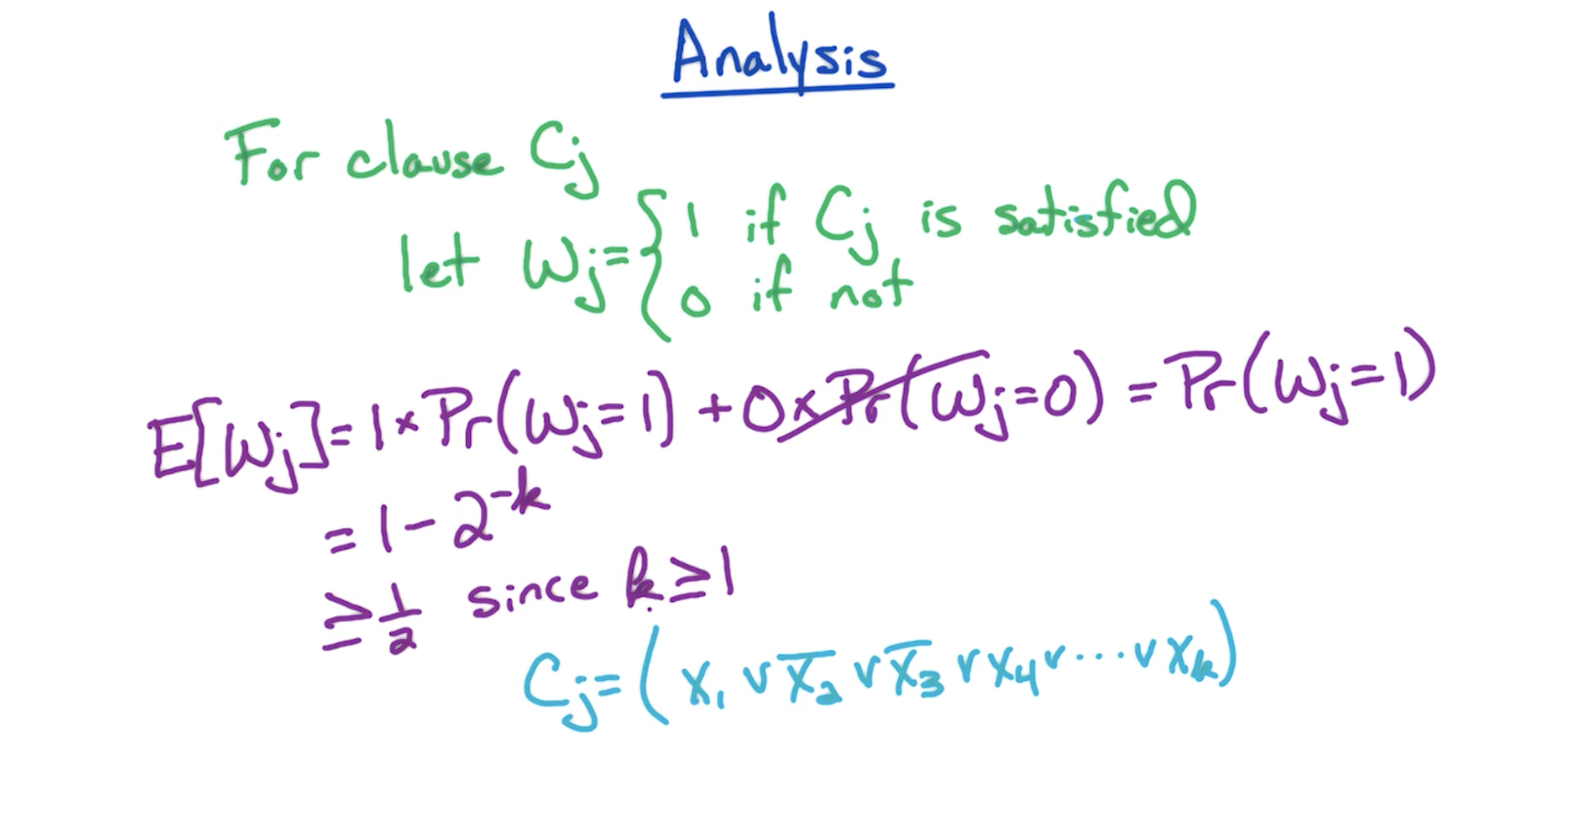 Analysis
For clause Cj
let Wj = { 1 if Cj is satisfied
0 if not
E[Wj] = 1 × Pr(Wj = 1) + 0 × Pr(Wj = 0) = Pr(Wj = 1)
= 1 − 2^-k
≥ 1/2 since k ≥ 1
Cj = (x₁ ∨ x̅₂ ∨ x̅₃ ∨ x₄ ∨ ··· ∨ xₖ)